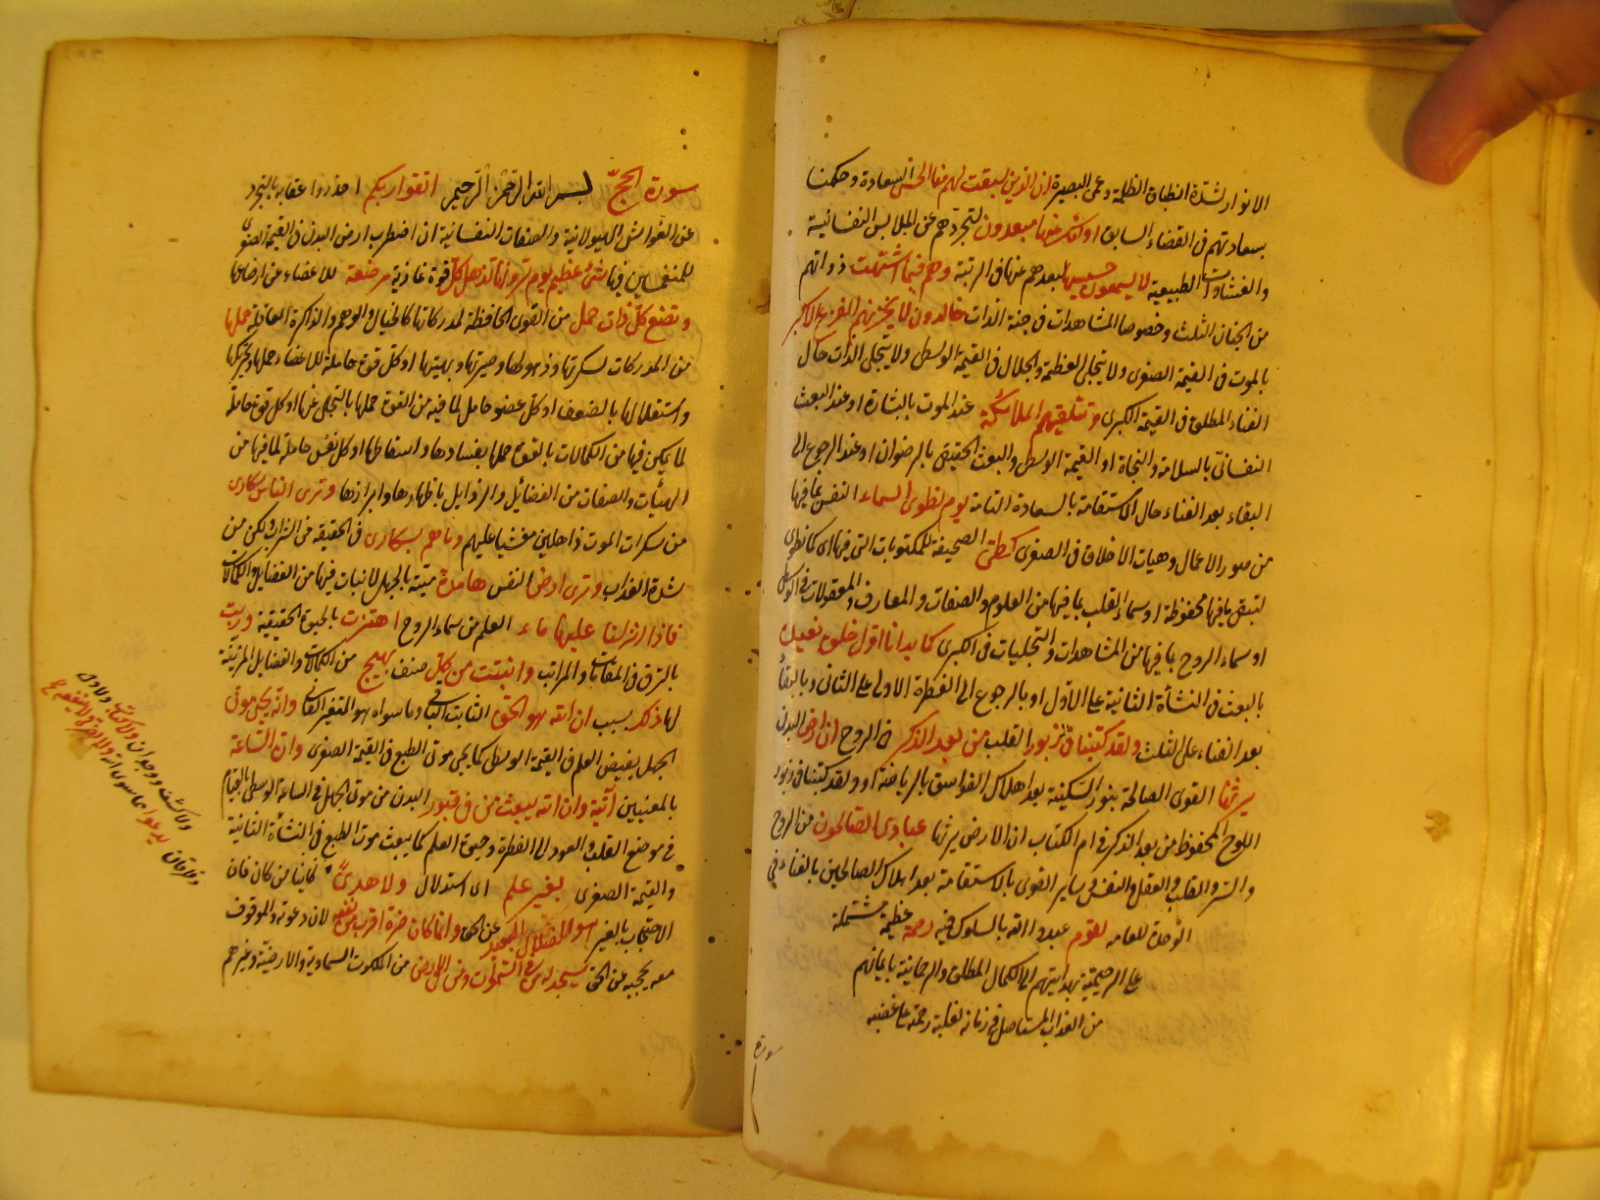 الانوار لشدة انطباق الظلمة وعمى البصيرة ان الذين سبقت لهم منا الحسنى السعادة وحكمنا
بسعادتهم فى القضاء السابق اولئك عنها مبعدون لتجردهم عن الملابس النفسانية
والغشاوات الطبيعية لا يسمعون حسيسها لبعدهم عنها فى الرتبة وهم فيما اشتهت ذواتهم
من الجنان الثلث وخصوصا المشاهدات فى جنة الذات خالدون لا يحزنهم الفزع الاكبر
بالموت فى القيمة الصغرى ولا بتجلى العظمة والجلال فى القيمة الوسطى ولا بتجلى الذات حال
الفناء المطلق فى القيمة الكبرى وتتلقيهم الملائكة عند الموت بالبشارة او عند البعث
النفسانى بالسلامة والنجاة او القيمة الوسطى والبعث الحقيقى بالرضوان او عند الرجوع الى
البقاء بعد الفناء حال الاستقامة بالسعادة التامة يوم نطوى السماء النفس بما فيها
من صور الاعمال وهيات الاخلاق فى الصغرى كطى الصحيفة للمكتوبات التى فيها اى كما تطوى
لتبقى ما فيها محفوظة او سماء القلب بما فيها من العلوم والصفات والمعارف والمعقولات فى الوسطى
او سماء الروح بما فيها من المشاهدات والتجليات فى الكبرى كما بدانا اول خلق نعيده
بالبعث فى النشأة الثانية على الاول او بالرجوع الى الفطرة الاولى على الثانى وبالبقاء
بعد الفناء على الثلث ولقد كتبنا فى زبور القلب من بعد الذكر فى الروح ان ارض البدن
يرثها القوى الصالحة بنور السكينة بعد اهلاك الفواسق بالرياضة او ولقد كتبنا فى زبور
اللوح المحفوظ من بعد الذكر فى ام الكتاب ان الارض يرثها عبادى الصالحون من الروح
والسر والقلب والعقل والنفس وساير القوى بالاستقامة بعد اهلاك الصالحين بالفناء فى
الوحدة للعامه لقوم عبدوا الله بالسلوك فيه رحمة عظيمة مشتملة
على الرحيمية بهدايتهم الى الكمال المطلق والرحمانية بامانهم
من العذاب المستاصل فى زمانه لغلبة رحمته على غضبه
سورة
سورة الحج بسم الله الرحمن الرحيم اتقوا ربكم احذروا عقابه بالتجرد
عن الغواشى الهيولانية والصفات النفسانية ان اضطراب ارض البدن فى القيمة الصغرى
للمنغمسين فيها شئ عظيم يوم ترونها تذهل كل قوة غاذية مرضعة للاعضاء عن ارضاعها
وتضع كل ذات حمل من القوى الحافظة لمدركاتها كالخيال والوهم والذاكرة العاقلة حملها
من المدركات لسكرتها وذهولها وحيرتها وبهتها او كل قوة حاملة للاعضاء حملها وتحريكها
واستقلالها بالضعف او كل عضو حامل لما فيه من القوة حملها بالتخلى عنها او كل قوة حاملة
لما يكن فيها من الكمالات بالقوة حملها بفسادها واسقاطها او كل نفس حاملة لما فيها من
الهيئات والصفات من الفضائل والرذايل باظهارها وابرازها وترى الناس سكارى
من سكرات الموت ذاهلين مغشيا عليهم وما هم بسكارى فى الحقيقة من الشراب ولكن من
شدة العذاب وترى ارض النفس هامدة ميتة بالجهل لا نبات فيها من الفضايل والكمالات
فاذا انزلنا عليها ماء العلم من سماء الروح اهتزت بالحيوة الحقيقية وربت
بالترقى فى المقامات والمراتب وانبتت من كل صنف بهيج من الكمالات والفضايل المزينة
لها ذلك بسبب ان الله هو الحق الثابت الباقى وما سواه هو المتغير الفانى وانه يحيى موتى
الجهل بفيض العلم فى القيمة الوسطى كما يحيى موتى الطبع فى القيمة الصغرى وان الساعة
بالمعنيين آتية وان الله يبعث من فى قبور البدن من موتى الجهل فى الساعة الوسطى بالقيام
فى موضع القلب والعود الى الفطرة وحيوة العلم كما يبعث موتى الطبع فى النشأة الثانية
والقيمة الصغرى بغير علم اى استدلال ولا هدى كاينا من كان فان
الاحتجاب بالغير هو الضلال البعيد عن الحق وانما كان ضره اقرب من نفعه لان دعوته والوقوف
معه يحجبه عن الحق يسجد له من فى السموات ومن فى الارض من الملكوت السماوية والارضية وغيرهم
ولا كشف ووجدان ولا كتاب ولا وحى
وفرقان يدعو مما سوى الله